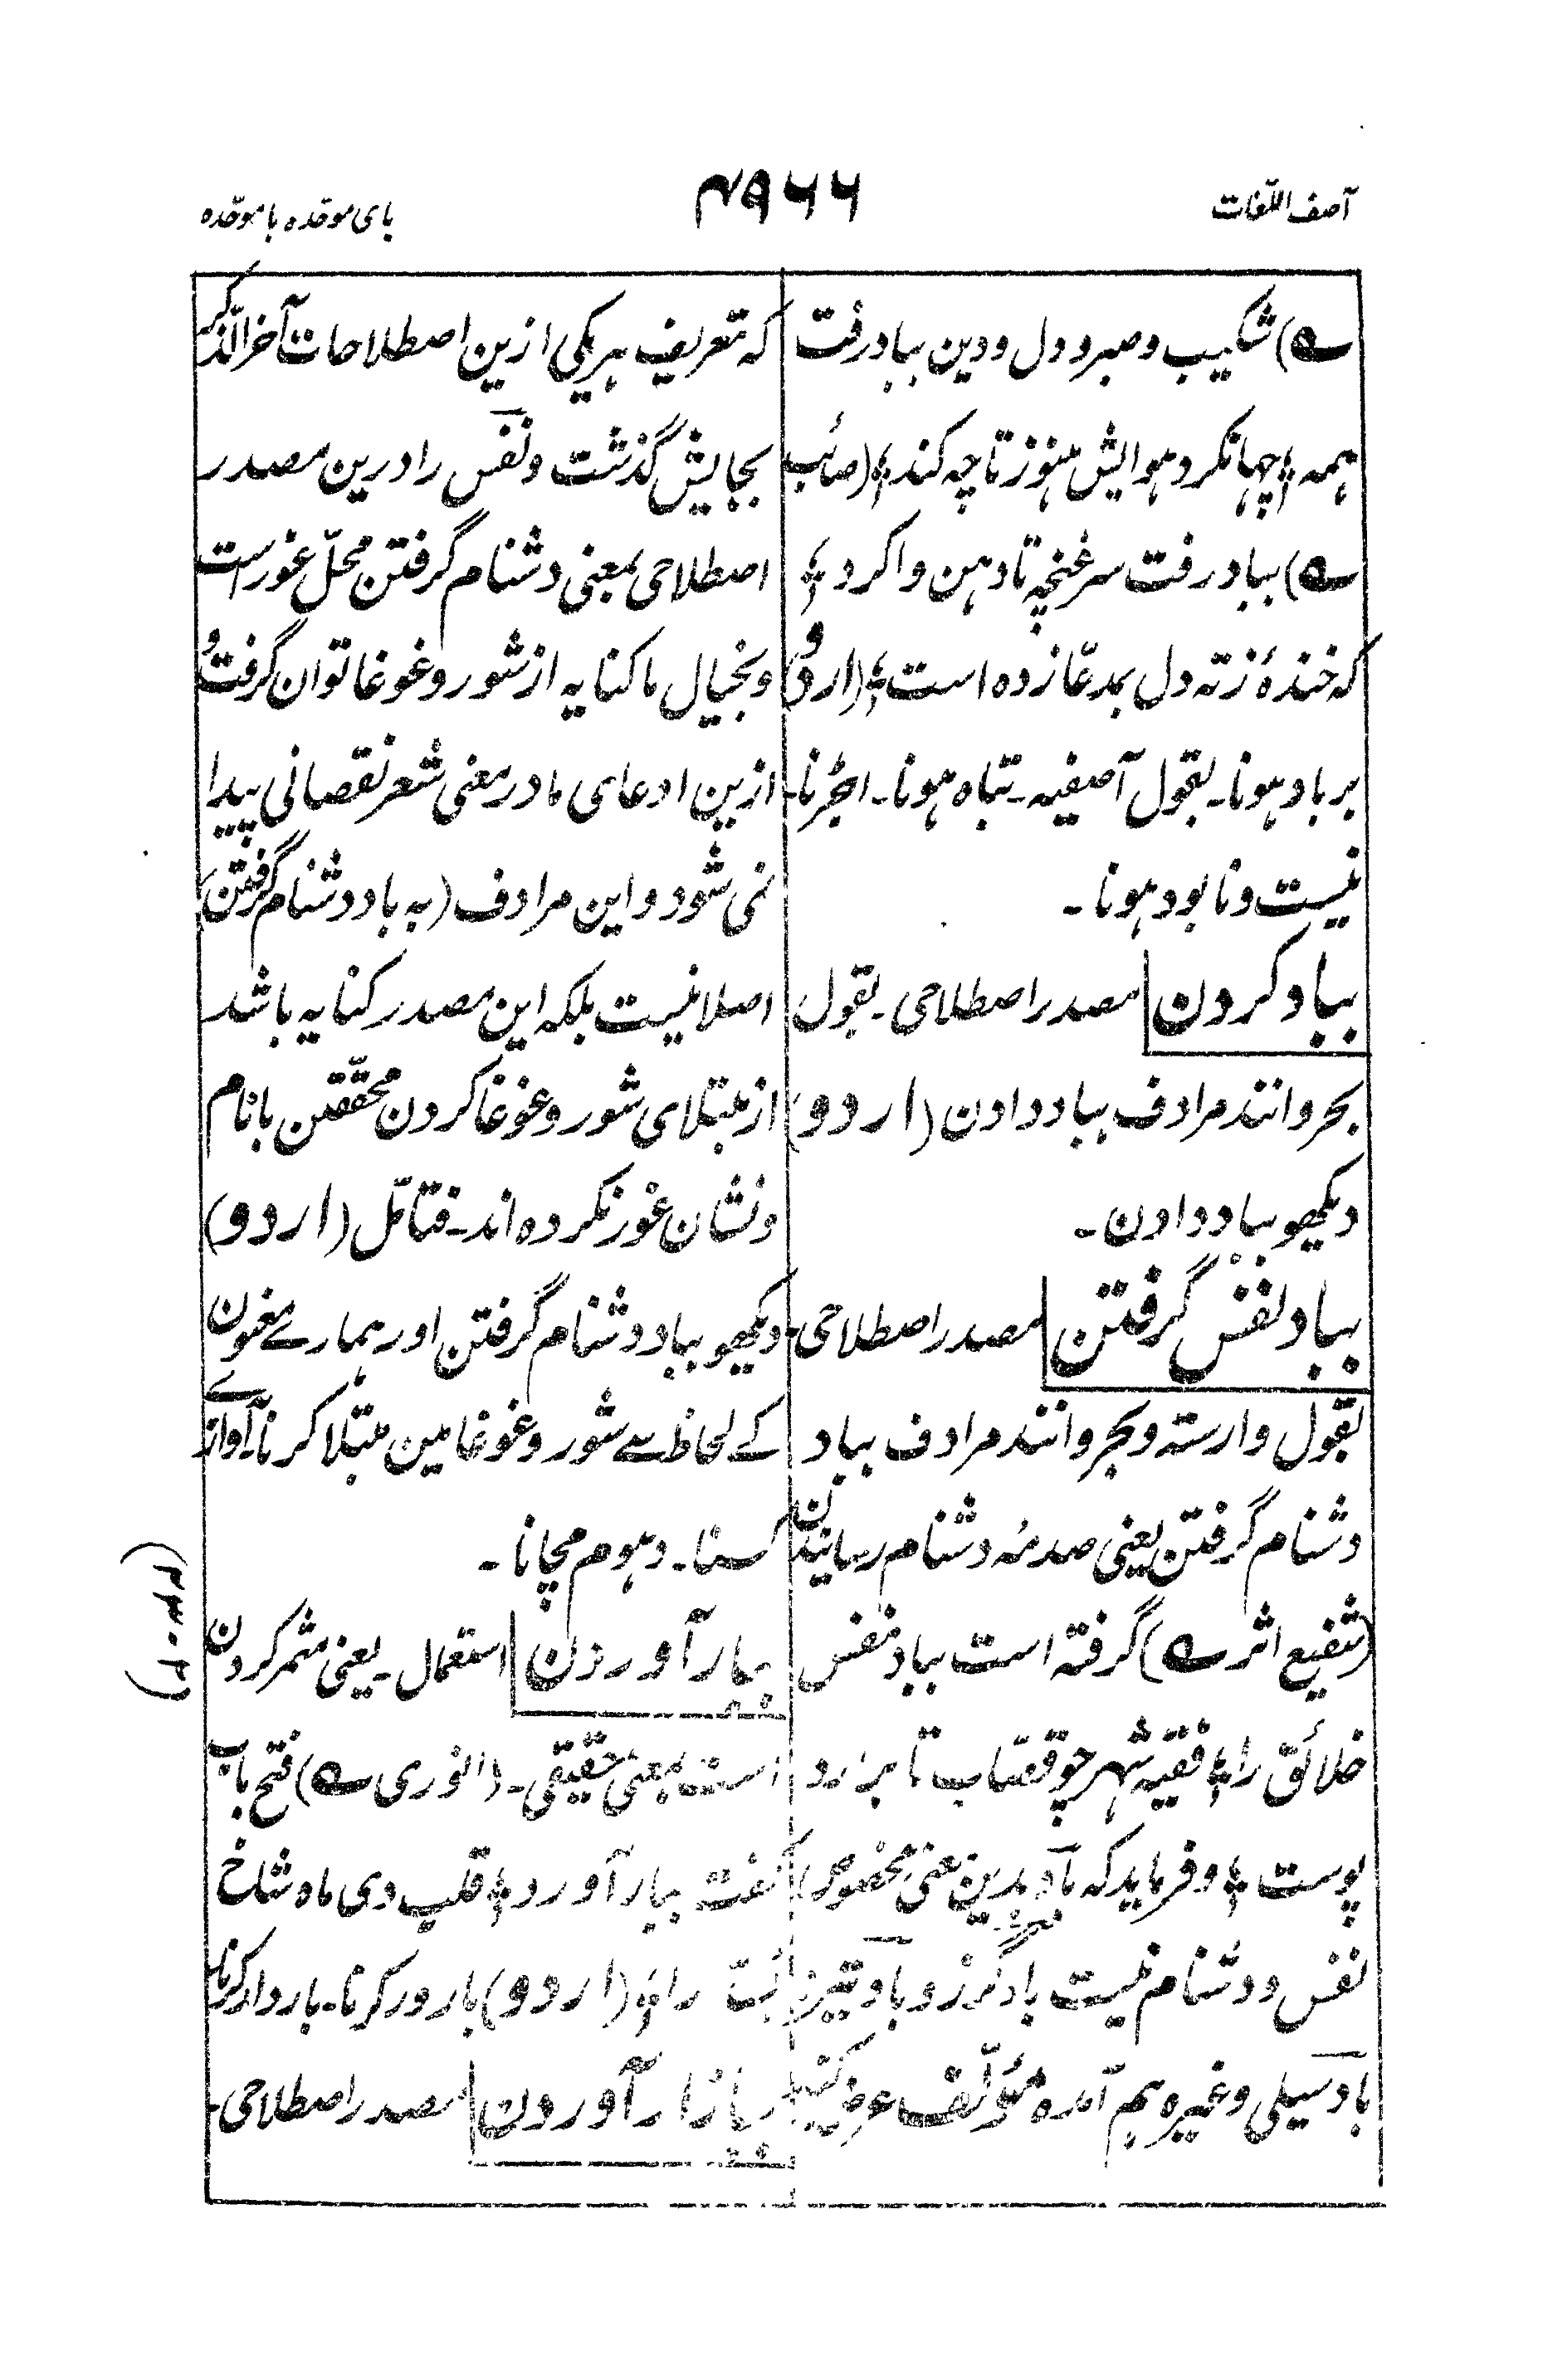 آصف اللّغات
۴۹۶۶
بای موحّده با موحّده
؎) شکیب و صبر و دل و دین بباد رفت
همه ؛ چها نکرد هوایش هنوز تا چه کند ؛ (صائب
؎) بباد رفت سر غنچه تا دهن وا کرد ؛
که خندهٔ زته دل بمدعّا زده است ؛ (اردو)
برباد ہونا۔ بقول آصفیہ۔ تباہ ہونا۔ اجڑنا۔
نیست و نابود ہونا۔
بباد کردن مصدر اصطلاحی۔ بقول
بحر و انند مرادف بباد دادن (اردو)
دیکھو بباد دادن۔
بباد نفس گرفتن مصدر اصطلاحی۔
بقول وارسته و بحر و انند مرادف بباد
دشنام گرفتن یعنی صدمهٔ دشنام رسانیدن
(شفیع اثر ؎) گرفته است بباد نفس
خلائق را ؛ فقیه شهر چو قصّاب تا برد
پوست ؛ و فرماید که باد بدین معنی مخصوص
نفس و دشنام نیست باد گرز و باد تیز
باد سیلی و غیره هم آمده مؤلّف عرض کند
که تعریف هر یکی ازین اصطلاحات آخر الذّکر
بجایش گذشت و نفس را درین مصدر
اصطلاحی بمعنی دشنام گرفتن محلّ غور است
و بخیال ما کنایه از شور و غوغا توان گرفت و
ازین ادعای ما در معنی شعر نقصانی پیدا
نمی شود و این مرادف (به باد دشنام گرفتن)
اصلا نیست بلکه این مصدر کنایه باشد
از مبتلای شور و غوغا کردن محقّقین با نام
و نشان غور نکرده اند۔ فتأمّل (اردو)
دیکھو بباد دشنام گرفتن اور ہمارے معنون
کے لحاظ سے شور و غوغا مین مبتلا کرنا۔ آوازے
کسنا۔ دہوم مچانا۔
ببار آوردن استعمال۔ یعنی مثمر کردن
است بمعنی حقیقی۔ (انوری ؎) فتح باب
کفت ببار آورد ؛ قلب دی ماه شاخ
را ؛ (اردو) بارور کرنا۔ باردار کرنا۔
ببازار آوردن مصدر اصطلاحی۔
(۲۳۰۲)